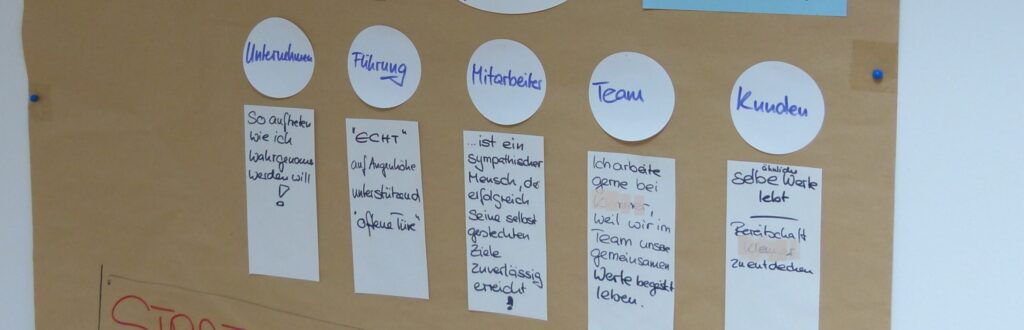 Unternehmen
So auftreten
wie ich
wahrgenomm
werden will
!
Führung
"ECHT"
auf Augenhöhe
unterstützend
"offene Türe"
Mitarbeiter
...ist ein
sympathischer
Mensch, de
erfolgreich
seine selbst
gesteckten
Ziele
zuverlässig
erreicht
!
Team
Ich arbeite
gerne bei
weil wir im
Team unsere
gemeinsamen
Werte begeistert
leben.
Kunden
ähnliche
selbe Werte
lebt
Bereitschaft
zu entdecken